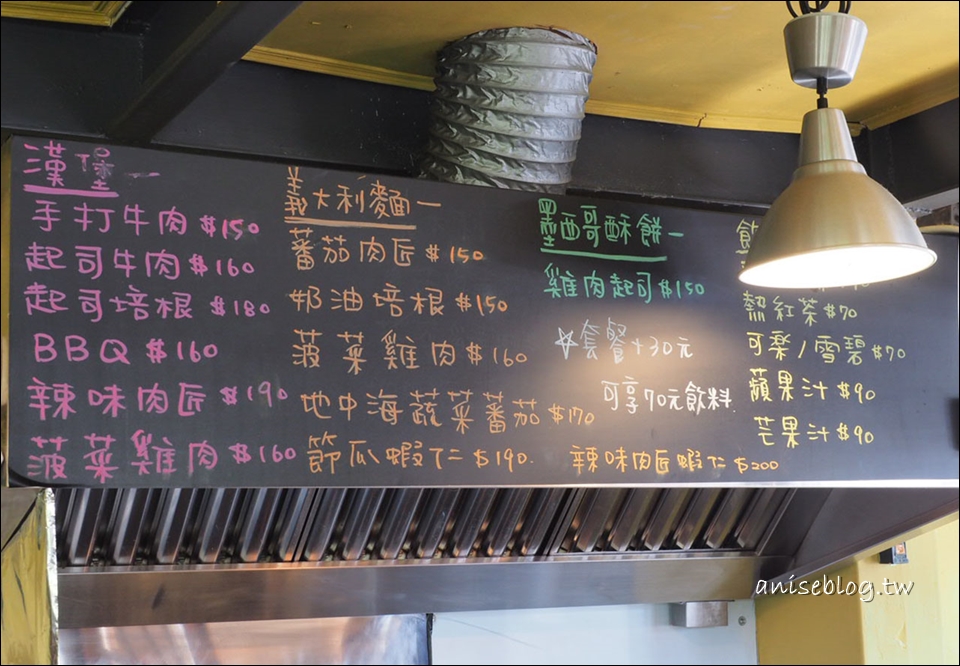 漢堡一
手打牛肉$150
起司牛肉$160
起司培根$180
BBQ $160
辣味肉匠$190
菠菜雞肉$160
義大利麵一
蕃茄肉匠$150
奶油培根$150
菠菜雞肉$160
地中海蔬菜蕃茄$170
節瓜蝦仁$190.
辣味肉匠蝦仁$200
墨西哥酥餅一
雞肉起司$150
☆套餐+30元
可享70元飲料.
飲
熱紅茶$70
可樂/雪碧$70
蘋果汁$90
芒果汁$90
aniseblog.tw